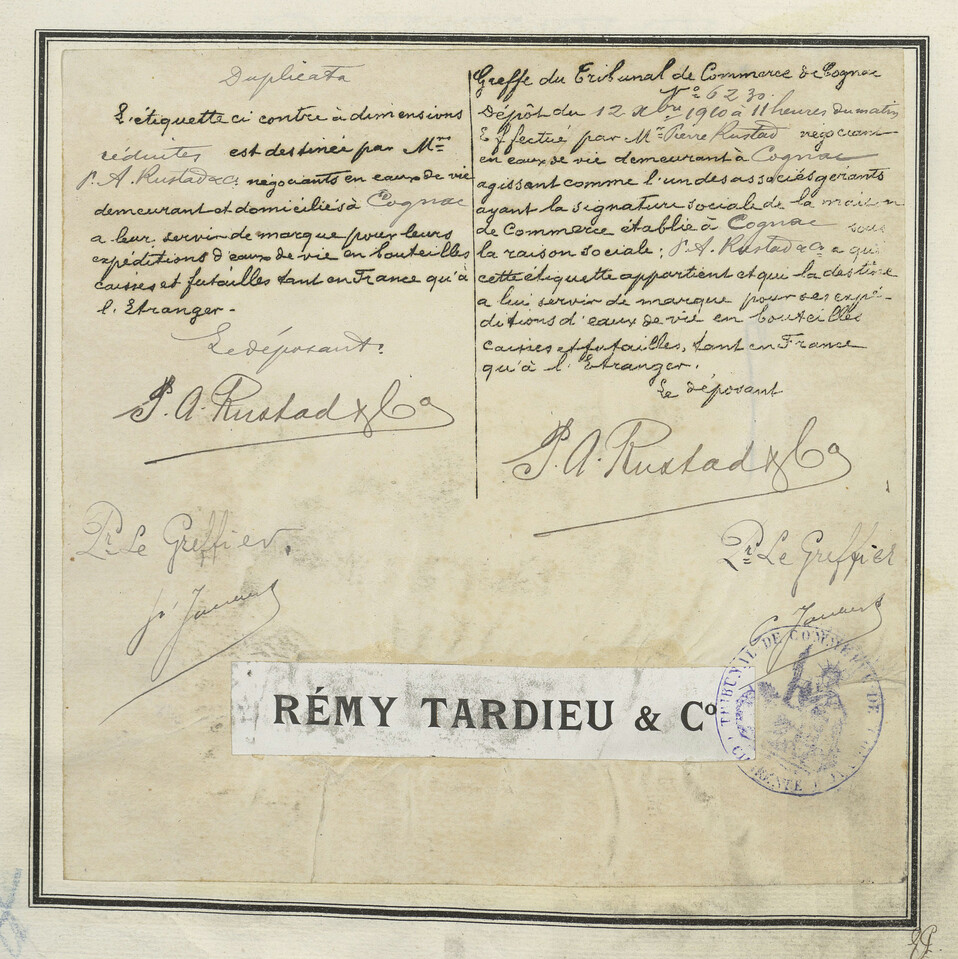 Duplicata
L'étiquette ci contre à dimensions
réduites est destinée par Mrs
P. A. Rustad & Co négociants en eaux de vie
demeurant et domiciliés à Cognac
a leur servir de marque pour leurs
expéditions d'eaux de vie en bouteilles
caisses et futailles tant en France qu'à
l'Etranger -
Le déposant.
P. A. Rustad & Co
Pr Le Greffier.
Greffe du Tribunal de Commerce de Cognac
No 6230.
Dépôt du 12 Xbre 1910 à 11 heures du matin
Effectué par Mr Pierre Rustad négociant
en eaux de vie demeurant à Cognac
agissant comme l'un des associés gérants
ayant la signature sociale de la maison
de Commerce établie à Cognac sous
la raison sociale; P. A. Rustad & Co a qui
cette étiquette appartient et qui la destine
a lui servir de marque pour ses expé-
ditions d'eaux de vie en bouteilles
caisses et futailles, tant en France
qu'à l'Etranger.
Le déposant
P. A. Rustad & Co
Pr Le Greffier
RÉMY TARDIEU & Co
TRIBUNAL DE COMMERCE DE